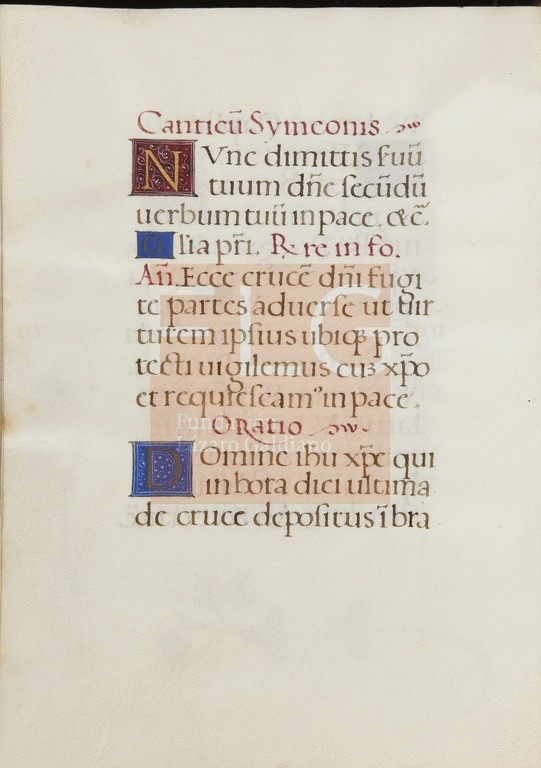 Canticū Symeonis
NVnc dimittis ſuū
tuum dñe ſecūdū
uerbum tuū in pace. &c̄.
Glia pr̄i. ℞ re in fo.
Añ. Ecce crucē dñi fugi
te partes aduerſe ut uir
tutem ipſius ubiqꝫ pro
tecti uigilemus cuꝫ xp̄o
et requieſcamꝰ in pace.
Oratio
DOmine ihu xp̄e qui
in hora diei ultima
de cruce depoſitus ī bra
FLG
Fundación
Lázaro Galdiano